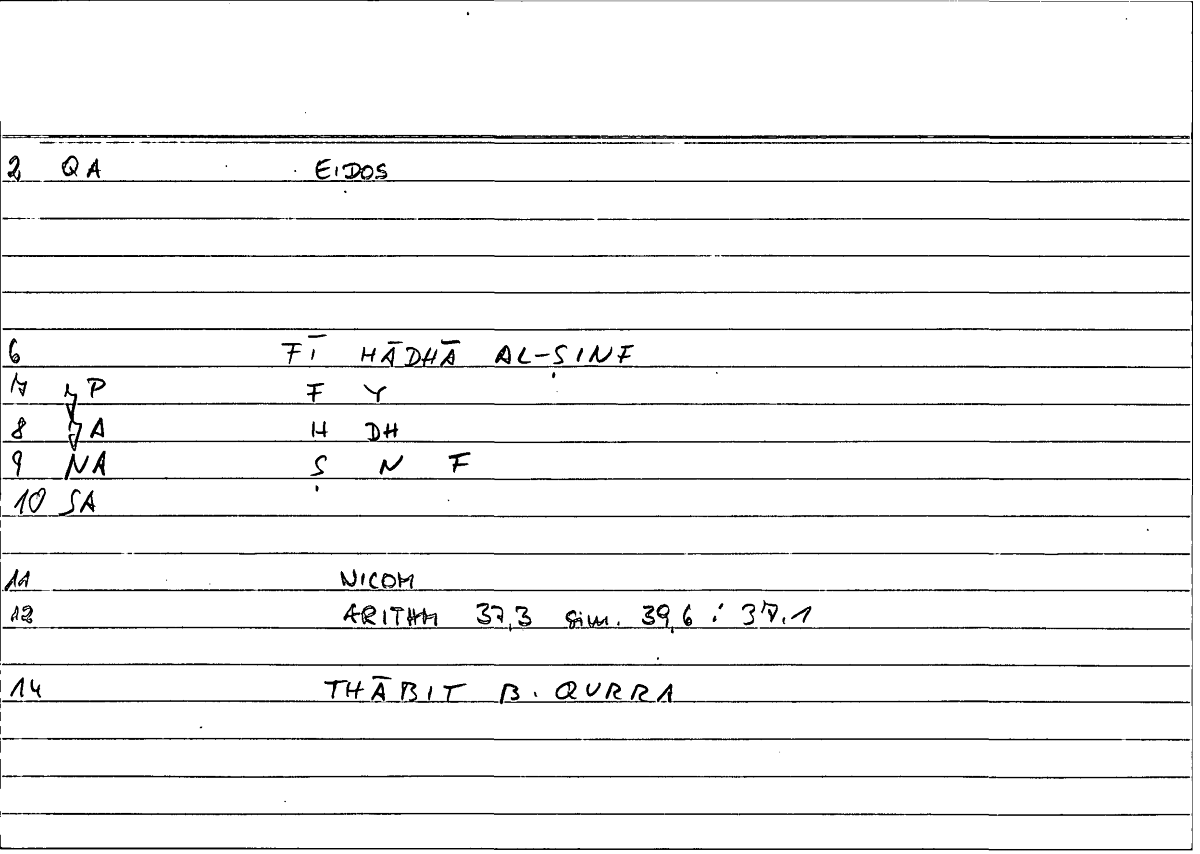 2 QA EIDOS
6 FĪ HĀDHĀ AL-ṢINF
7 P F Y
8 A H DH
9 NA Ṣ N F
10 SA
11 NICOM
12 ARITHM 37,3 sim. 39,6 ; 37.1
14 THĀBIT B. QURRA